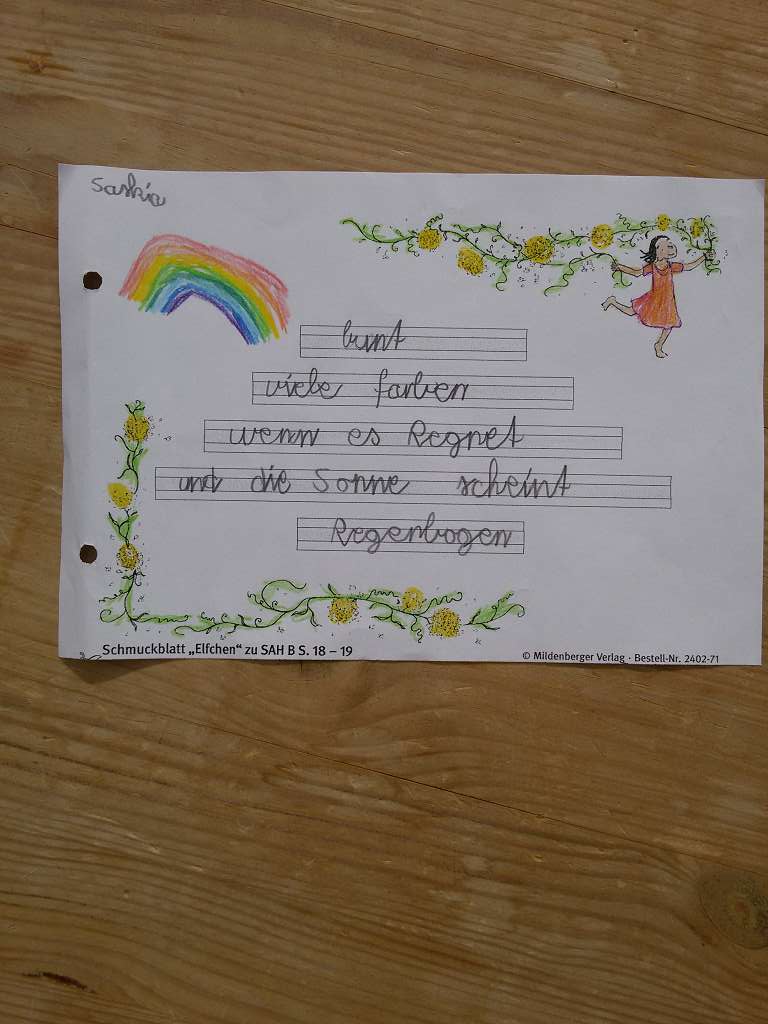 Saskia
bunt
viele farben
wenn es Regnet
und die Sonne scheint
Regenbogen
Schmuckblatt „Elfchen“ zu SAH B S. 18 – 19
© Mildenberger Verlag · Bestell-Nr. 2402-71